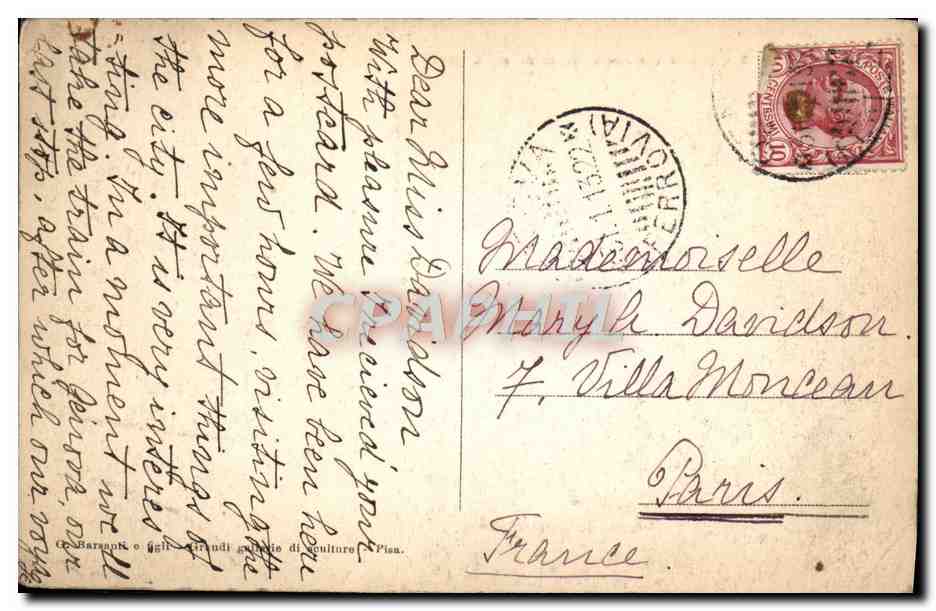 Dear Miss Davidson
With pleasure I recieved your
postcard. We have been here
for a few hours, visiting the
more important things of
the city. It is very interes-
ting. In a moment we'll
take the train for Genova, our
last stop, after which our voyage
Mademoiselle
Mary h Davidson.
7, Villa Monceau
Paris.
France
G. Barsanti e figli - Grandi gallerie di sculture - Pisa.
FERROVIA)
1.1522
POSTE
CENTESIMI 10
CPAPHIL